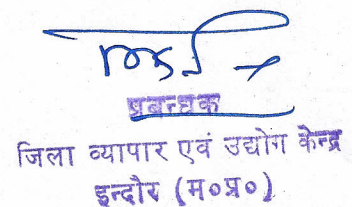 प्रबन्धक
जिला व्यापार एवं उद्योग केन्द्र
इन्दौर (म०प्र०)